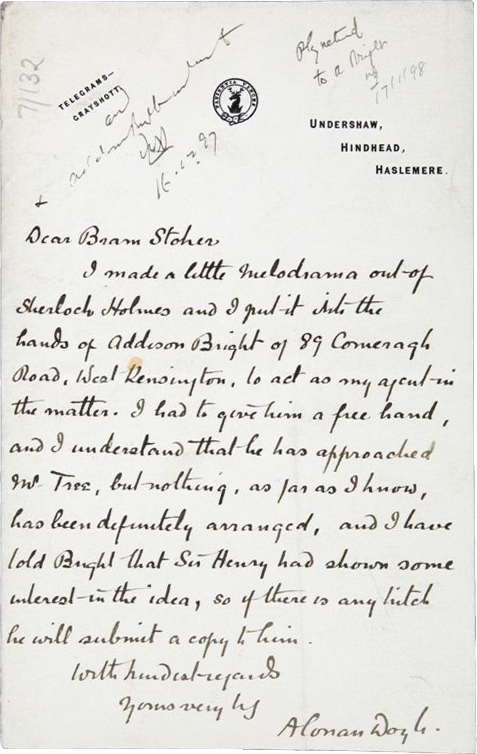 7/132
TELEGRAMS—
GRAYSHOTT.
and
16.12.97
to a Bright
17/1/98
UNDERSHAW,
HINDHEAD,
HASLEMERE.
Dear Bram Stoker
I made a little melodrama out of
Sherlock Holmes and I put it into the
hands of Addison Bright of 89 Comeragh
Road, West Kensington, to act as my agent in
the matter. I had to give him a free hand,
and I understand that he has approached
Mr Tree, but nothing, as far as I know,
has been definitely arranged, and I have
told Bright that Sir Henry had shown some
interest in the idea, so if there is any hitch
he will submit a copy to him.
With kindest regards
Yours very truly
A Conan Doyle.